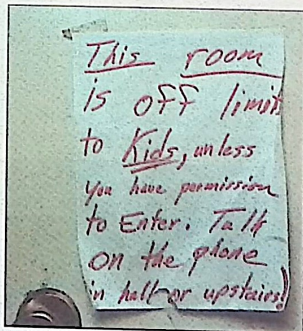 This room
is off limits
to Kids, unless
you have permission
to Enter. Talk
on the phone
in hall or upstairs!)